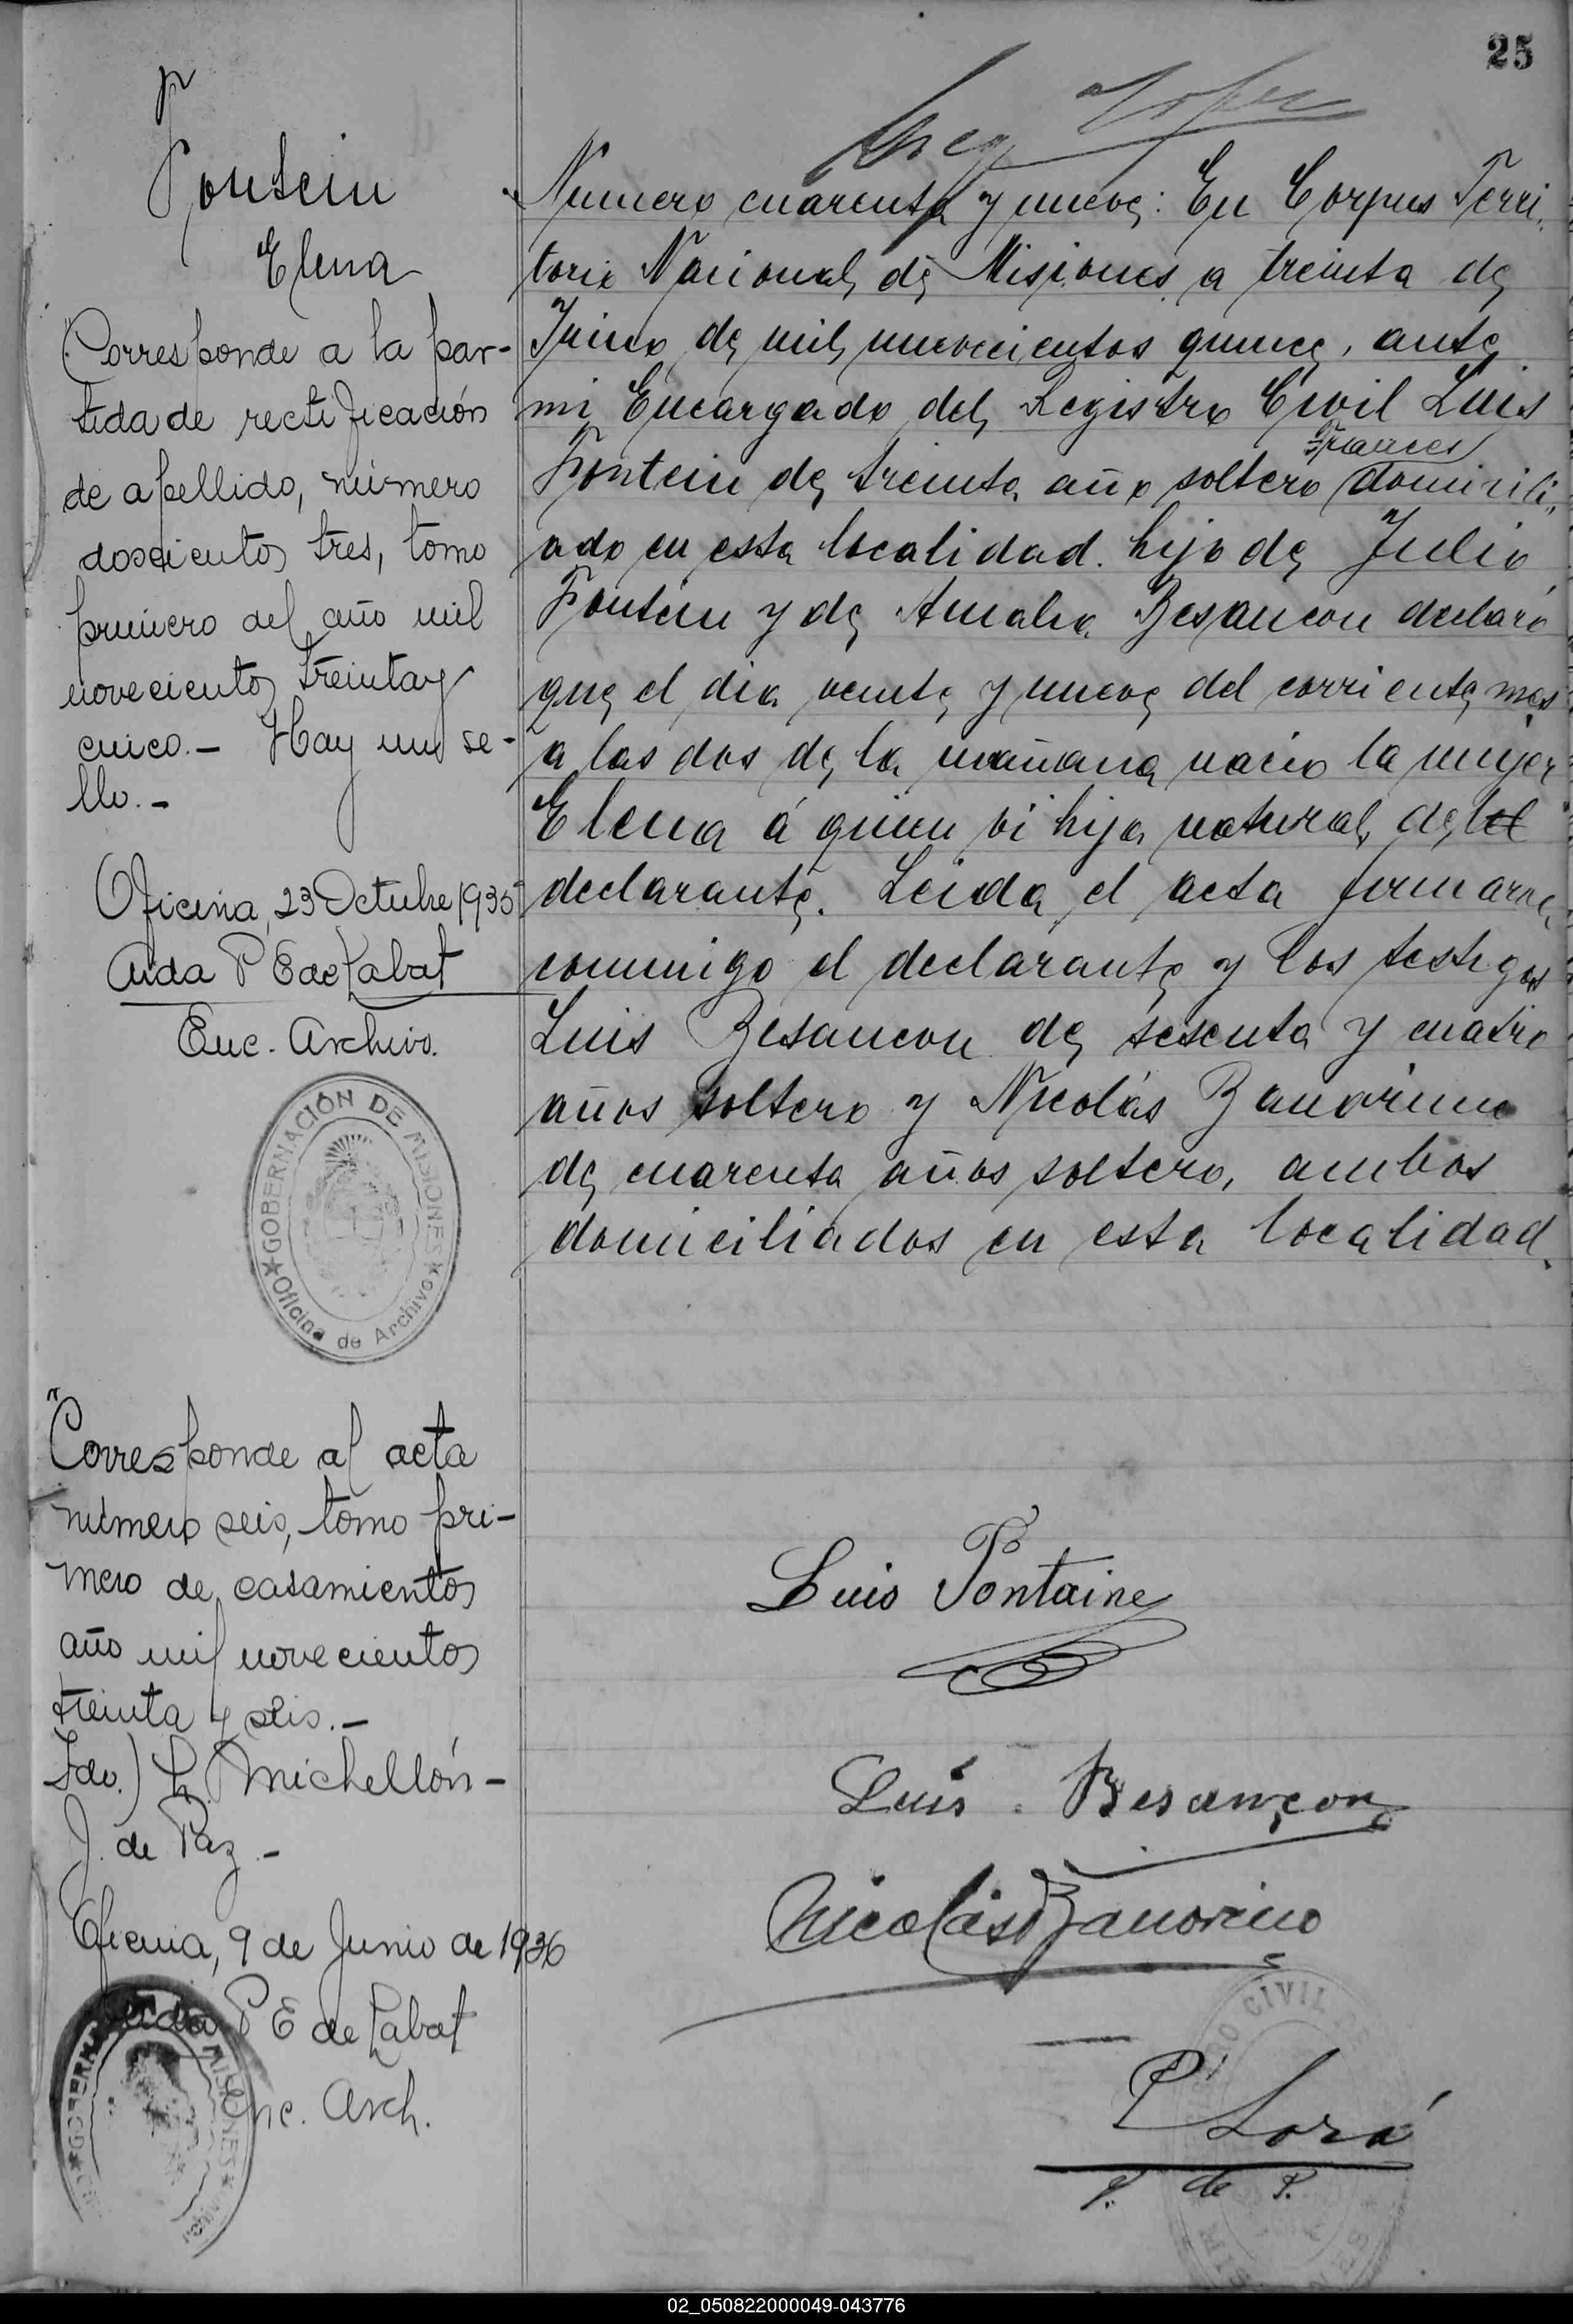 25
Fontein
Elena
"Corresponde a la par-
tida de rectificación
de apellido, número
doscientos tres, tomo
primero del año mil
novecientos treinta y
cinco.- Hay un se-
llo.-
Oficina, 23 Octubre 1935
Aida P E de Labat
Enc. Archivo.
GOBERNACIÓN DE MISIONES
Oficina de Archivo
"Corresponde al acta
número seis, tomo pri-
mero de casamientos
año mil novecientos
treinta y seis.-
Fdo.) L. Michellón-
J. de Paz.-
Oficina, 9 de Junio de 1936
Aida P E de Labat
Enc. Arch.
Numero cuarenta y nueve: En Corpus Terri-
torio Nacional de Misiones a treinta de
Junio de mil nuevecientos quince, ante
mi Encargado del Registro Civil Luis
Frances
Fontein de treinta año soltero domicili-
ado en esta localidad. hijo de Julio
Fontein y de Amalia Besancon declaró
que el dia veinte y nueve del corriente mes
a las dos de la mañana nacio la mujer
Elena á quien vi hija natural del
declarante. Leida el acta firmaron
conmigo el declarante y los testigos
Luis Besancon de sesenta y cuatro
años soltero y Nicolás Zanorino
de cuarenta años soltero, ambos
domiciliados en esta localidad.
Luis Fontaine
Luis Besançon
Nicolás Zanorino
CIVIL
P Lorá
J. de P.
02_050822000049-043776